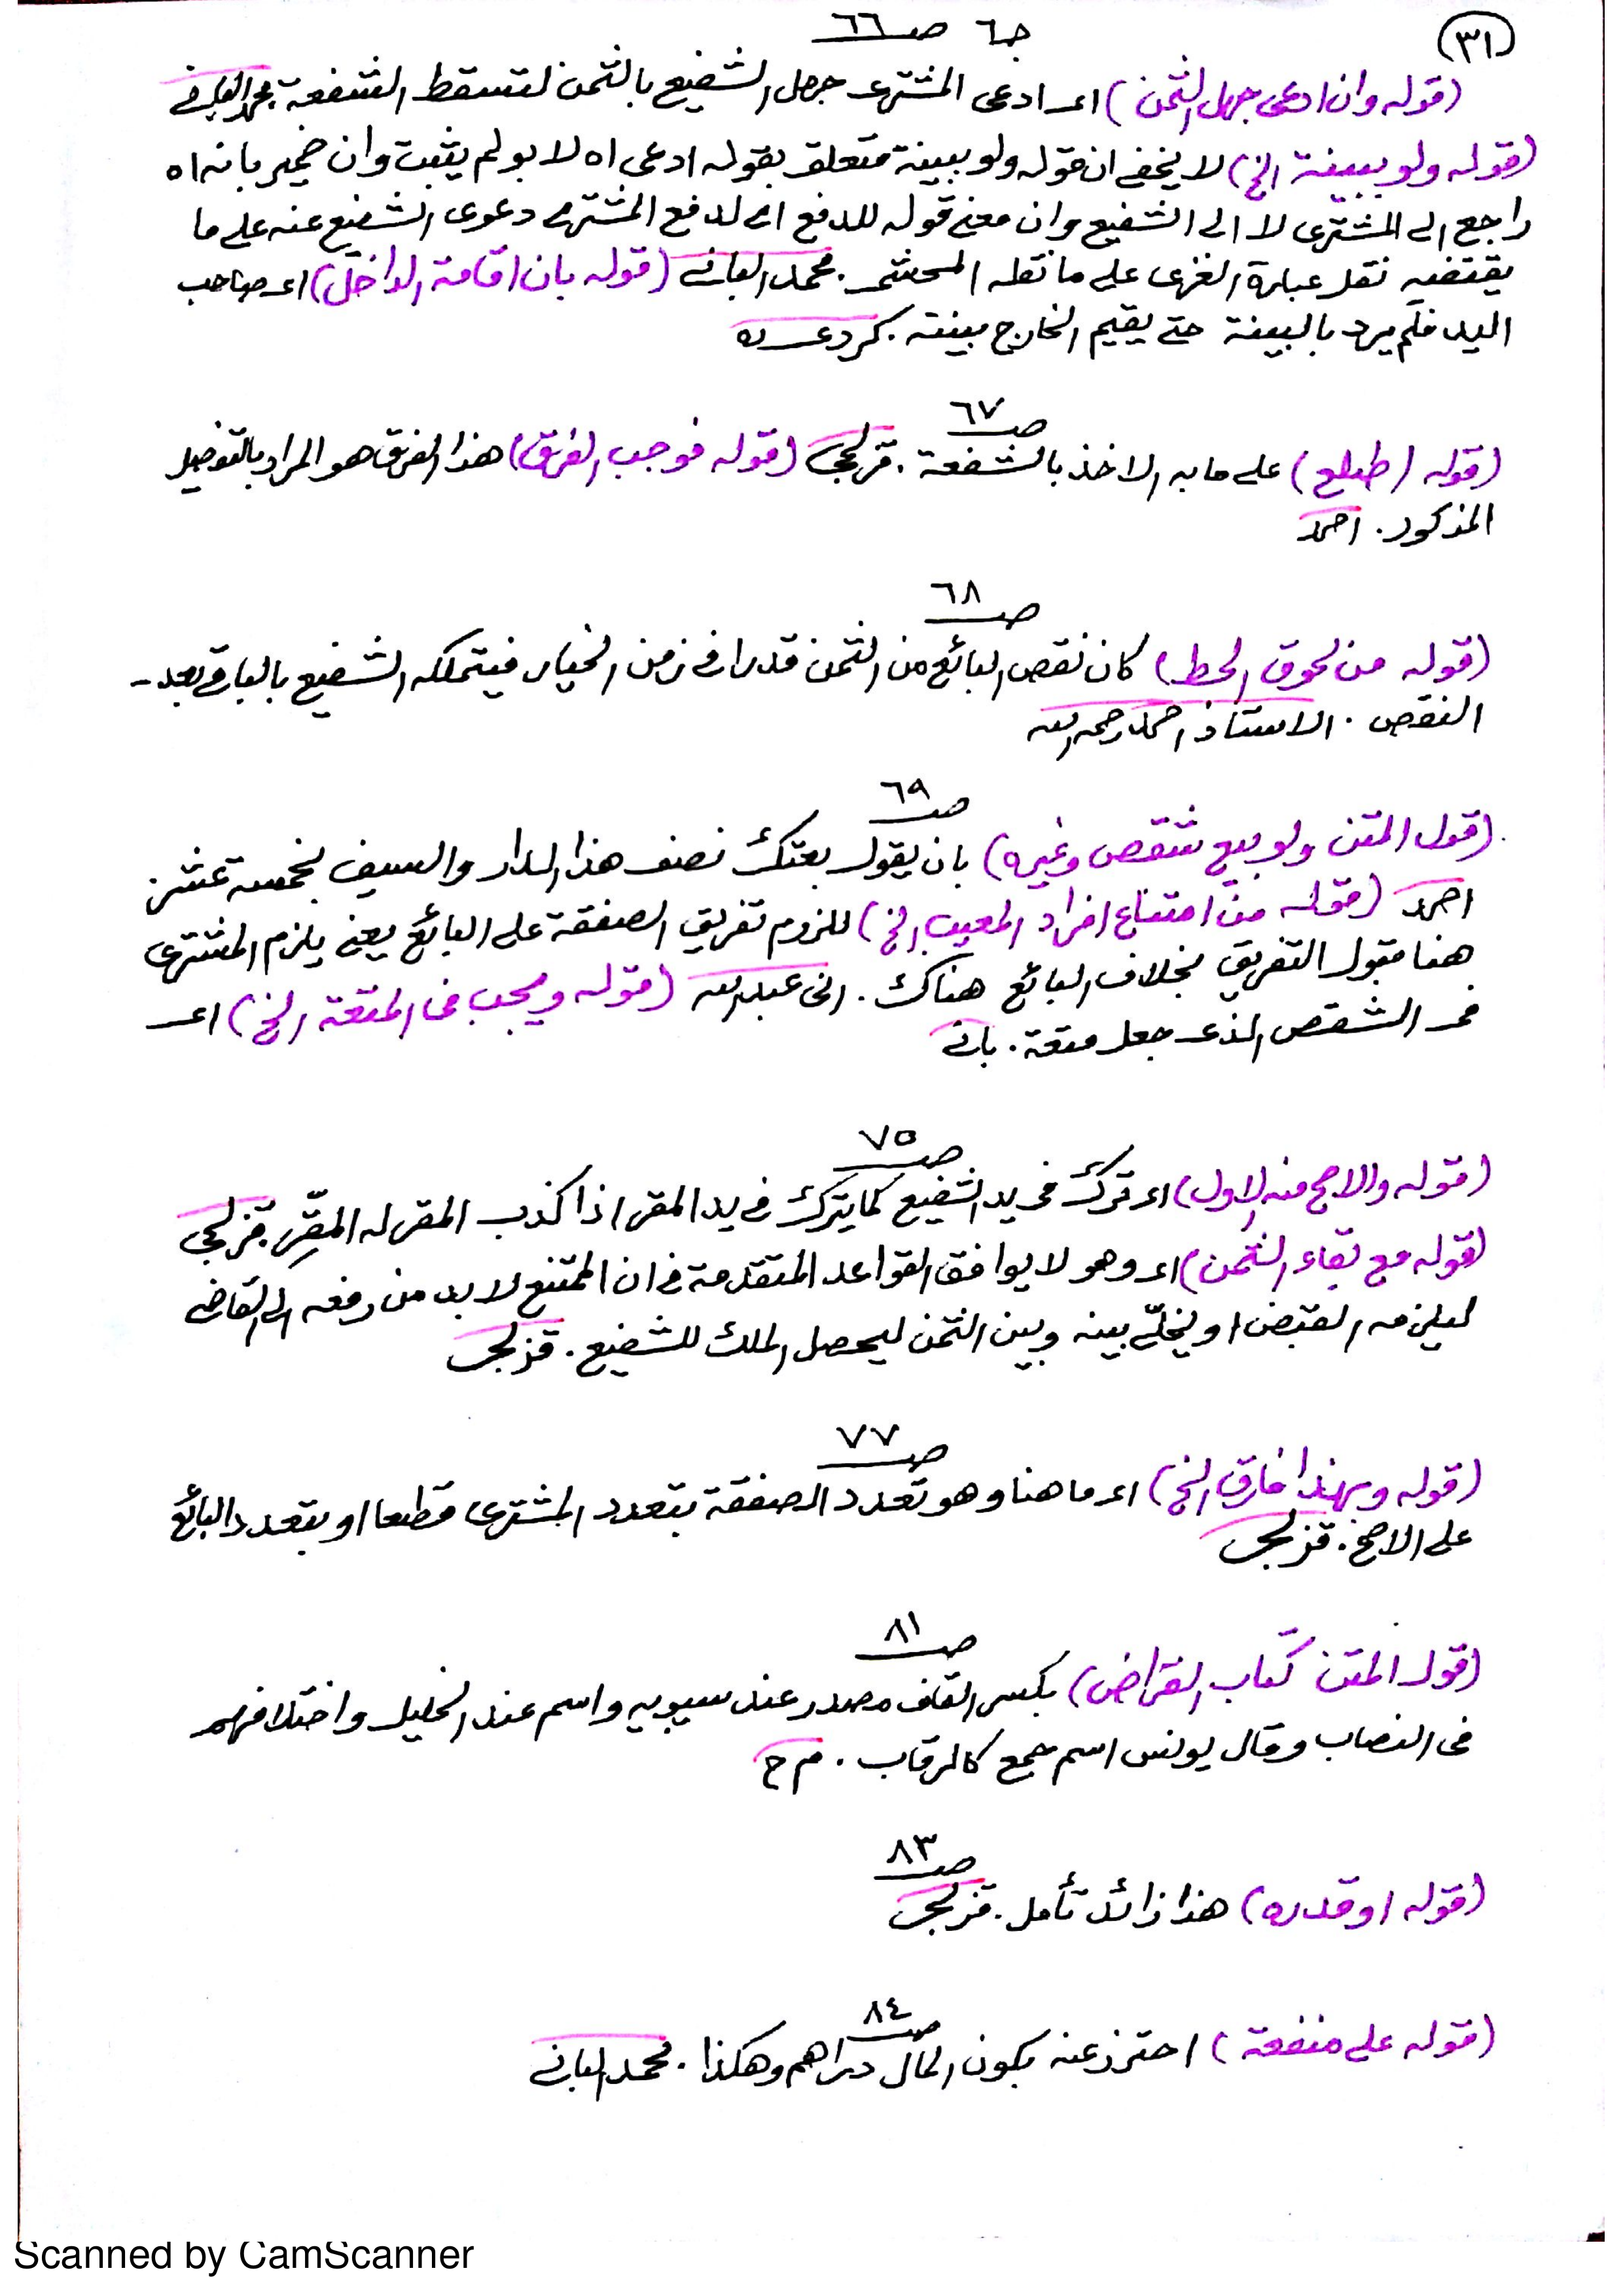 ٣١
ج٦ صـ ٦٦
(قوله وان ادعى جهل الثمن) اى ادعى المشترى جهل الشفيع بالثمن لتسقط الشفعة. محمد البانى
(قوله ولو ببينة الخ) لا يخفى ان قوله ولو ببينة متعلق بقوله ادعى اه لا بو لم يثبت وان ضمير بانه اه
راجع الى المشترى لا الى الشفيع وان معنى قوله للدفع اى لدفع المشترى دعوى الشفيع عنه على ما
يقتضيه نقل عبارة الغزى على ما نقله المحشى. محمد البانى (قوله بان اقامة الداخل) اى صاحب
اليد فلم يرد بالبينة حتى يقيم الخارج ببينته.
صـ ٦٧
(قوله اطلع) على ما به الاخذ بالشفعة. قزلجى (قوله فوجب الفرق) هذا الفرق هو المراد بالتفصيل
المذكور. احمد
صـ ٦٨
(قوله من لحوق الحط) كان نقص البائع من الثمن قدرا فى زمن الخيار فيتملكه الشفيع بالباقى بعد -
النقص. الاستاذ احمد رحمه الله
صـ ٦٩
(قول المتن ولو بيع شقص وغيره) بان يقول بعتك نصف هذا الدار والسيف بخمسة عشر.
احمد (قوله من امتناع افراد المعيب الخ) للزوم تفريق الصفقة على البائع يعنى يلزم المشترى
هنا مقبول التفريق بخلاف البائع هناك. ابى عبدالله (قوله ويجب فى المتعة الخ) اى
فى الشقص الذى جعل متعة. بانى
صـ ٧٥
(قوله والاصح منه الاول) اى ترك فى يد الشفيع كما يترك فى يد المقر اذا كذب المقر له المقِرّ. قزلجى
(قوله مع بقاء الثمن) اى وهو لا يوافق القواعد المتقدمة فى ان الممتنع لا بد من رفعه الى القاضى
ليلزمه القبض او يخلّى بينه وبين الثمن ليحصل الملك للشفيع. قزلجى
صـ ٧٧
(قوله وبهذا فارق الخ) اى ما هنا وهو تعدد الصفقة بتعدد المشترى قطعا او بتعدد البائع
على الاصح. قزلجى
صـ ٨١
(قول المتن كتاب القراض) بكسر القاف مصدر عند سيبويه واسم عند الخليل واختلافهم
فى النصاب وقال يونس اسم جمع كالرقاب. م ح
صـ ٨٣
(قوله او قدره) هذا زائد تأمل. قزلجى
صـ ٨٤
(قوله على منفعة) احترز عنه بكون المال دراهم وهكذا. محمد البانى
Scanned by CamScanner